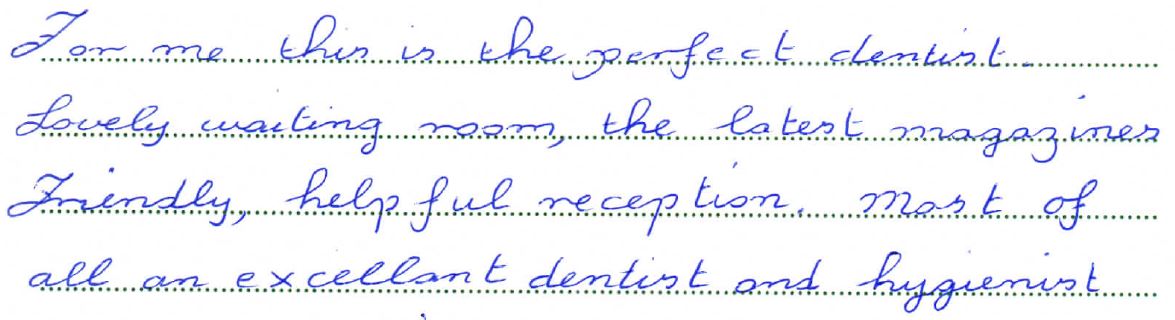 For me this is the perfect dentist.
Lovely waiting room, the latest magazines
Friendly, helpful reception. Most of
all an excellant dentist and hygienist